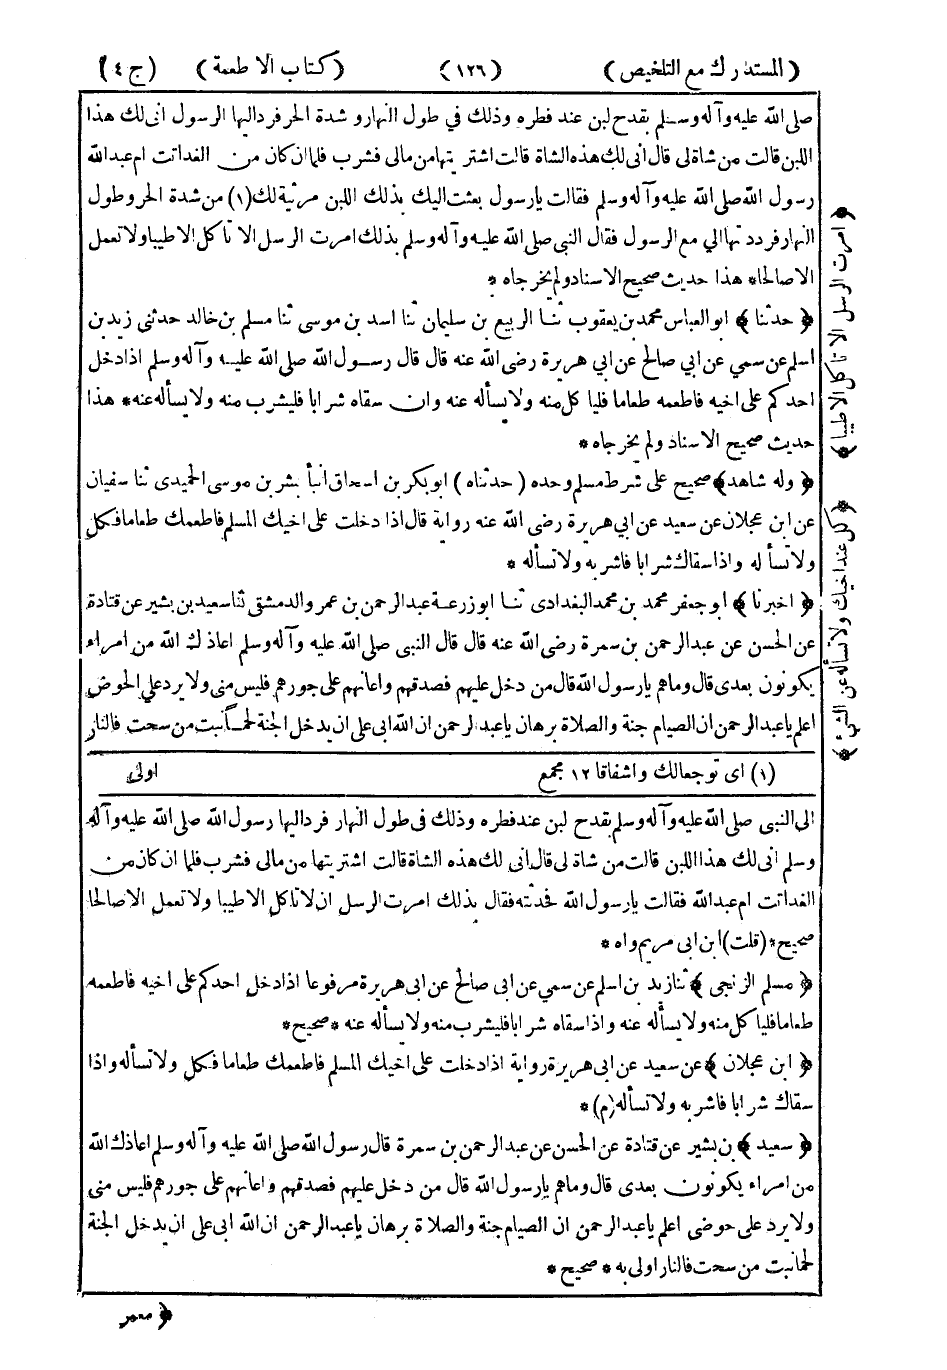 (المستدرك مع التلخيص) (١٢٦) (كتاب الاطعمة) (ج ٤)
صلى الله عليه وآله وسلم بقدح لبن عند فطره وذلك في طول النهار وشدة الحر فرد اليها الرسول انى لك هذا
اللبن قالت من شاة لى قال انى لك هذه الشاة قالت اشتريتها من مالى فشرب فلما ان كان من الغد اتت ام عبدالله
رسول الله صلى الله عليه وآله وسلم فقالت يارسول بعثت اليك بذلك اللبن مرثية لك (١) من شدة الحر وطول
النهار فرددتها الي مع الرسول فقال النبي صلى الله عليه وآله وسلم بذلك امرت الرسل الا تاكل الاطيبا ولا تعمل
الا صالحا * هذا حديث صحيح الاسناد ولم يخرجاه *
﴿ حدثنا ﴾ ابو العباس محمد بن يعقوب ثنا الربيع بن سليمان ثنا اسد بن موسى ثنا مسلم بن خالد حدثني زيد بن
اسلم عن سمي عن ابي صالح عن ابي هريرة رضى الله عنه قال قال رسول الله صلى الله عليه وآله وسلم اذا دخل
احدكم على اخيه فاطعمه طعاما فليأكل منه ولا يسأله عنه وان سقاه شرابا فليشرب منه ولا يسأله عنه * هذا
حديث صحيح الاسناد ولم يخرجاه *
﴿ وله شاهد ﴾ صحيح على شرط مسلم وحده (حدثناه) ابوبكر بن اسحاق انبأ بشر بن موسى الحميدى ثنا سفيان
عن ابن عجلان عن سعيد عن ابي هريرة رضى الله عنه رواية قال اذا دخلت على اخيك المسلم فاطعمك طعاما فكل
ولا تسأله واذا سقاك شرابا فاشربه ولا تسأله *
﴿ اخبرنا ﴾ ابوجعفر محمد بن محمد البغدادى ثنا ابوزرعة عبدالرحمن بن عمرو الدمشقى ثنا سعيد بن بشير عن قتادة
عن الحسن عن عبدالرحمن بن سمرة رضى الله عنه قال قال النبى صلى الله عليه وآله وسلم اعاذك الله من امراء
يكونون بعدى قال وماهم يارسول الله قال من دخل عليهم فصدقهم واعانهم على جورهم فليس منى ولا يرد علي الحوض
اعلم ياعبدالرحمن ان الصيام جنة والصلاة برهان ياعبدالرحمن ان الله ابى على ان يدخل الجنة لحمًا نبت من سحت فالنار
(١) اى توجعا لك واشفاقا ١٢ مجمع
اولى
الى النبى صلى الله عليه وآله وسلم بقدح لبن عند فطره وذلك فى طول النهار فرد اليها رسول الله صلى الله عليه وآله
وسلم انى لك هذا اللبن قالت من شاة لى قال انى لك هذه الشاة قالت اشتريتها من مالى فشرب فلما ان كان من
الغد اتت ام عبدالله فقالت يارسول الله فحدثته فقال بذلك امرت الرسل ان لا تاكل الاطيبا ولا تعمل الا صالحا
صحيح * (قلت) ابن ابى مريم واه *
﴿ مسلم الزنجى ﴾ ثنا زيد بن اسلم عن سمي عن ابى صالح عن ابى هريرة مرفوعا اذا دخل احدكم على اخيه فاطعمه
طعاما فليأكل منه ولا يسأله عنه واذا سقاه شرابا فليشرب منه ولا يسأله عنه * صحيح *
﴿ ابن عجلان ﴾ عن سعيد عن ابى هريرة رواية اذا دخلت على اخيك المسلم فاطعمك طعاما فكل ولا تسأله واذا
سقاك شرابا فاشربه ولا تسأله (م) *
﴿ سعيد ﴾ بن بشير عن قتادة عن الحسن عن عبدالرحمن بن سمرة قال رسول الله صلى الله عليه وآله وسلم اعاذك الله
من امراء يكونون بعدى قال وماهم يارسول الله قال من دخل عليهم فصدقهم واعانهم على جورهم فليس منى
ولا يرد على حوضى اعلم ياعبدالرحمن ان الصيام جنة والصلاة برهان ياعبدالرحمن ان الله ابى على ان يدخل الجنة
لحما نبت من سحت فالنار اولى به * صحيح *
﴿ معمر
﴿ امرت الرسل الا تاكل الاطيبا ﴾
﴿ كل عند اخيك ولا تسأله عن الشئ ﴾